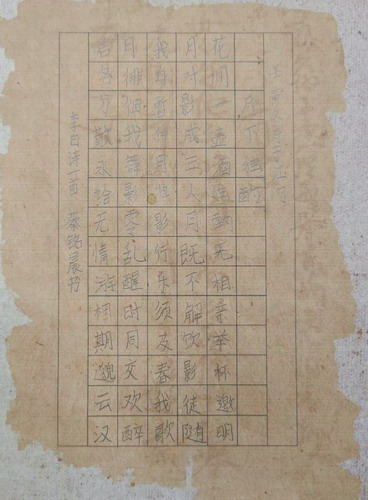 月下独酌
花间一壶酒独酌无相亲举杯邀明
月对影成三人月既不解饮影徒随
我身暂伴月将影行乐须及春我歌
月徘徊我舞影零乱醒时同交欢醉
后各分散永结无情游相期邈云汉
李白诗一首 蔡铭晨书